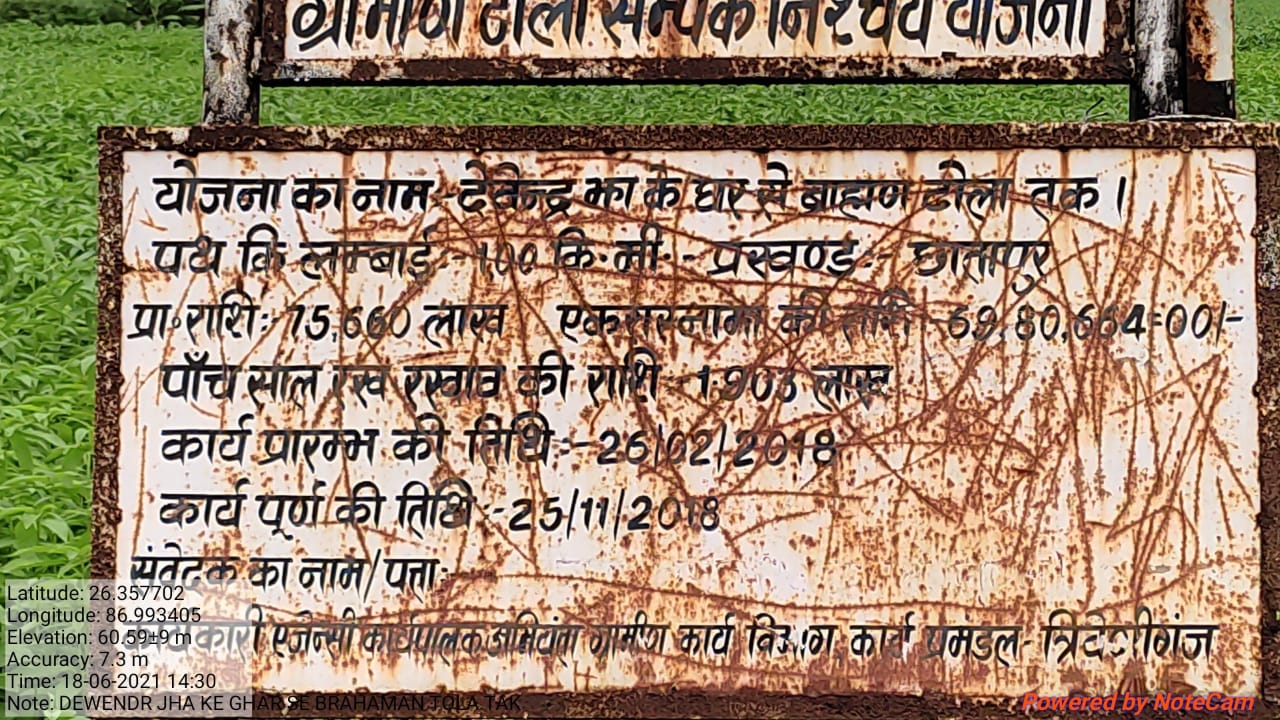 ग्रामीण टोला सम्पर्क निश्चय योजना
योजना का नाम :- देवेन्द्र झा के घर से ब्राह्मण टोला तक ।
पथ कि लम्बाई :- 1.00 कि.मी. - प्रखण्ड :- छातापुर
प्रा॰ राशि :- 75,660 लाख एकरारनामा की राशि :- 69,80,664=00/-
पाँच साल रख रखाव की राशि :- 1.903 लाख
कार्य प्रारम्भ की तिथि :- 26/02/2018
कार्य पूर्ण की तिथि :- 25/11/2018
संवेदक का नाम/पत्ता:-
कारी एजेन्सी कार्यपालक अभियंता ग्रामीण कार्य विभाग, कार्य प्रमंडल- त्रिवेणीगंज
Latitude: 26.357702
Longitude: 86.993405
Elevation: 60.59±9 m
Accuracy: 7.3 m
Time: 18-06-2021 14:30
Note: DEWENDR JHA KE GHAR SE BRAHAMAN TOLA TAK
Powered by NoteCam